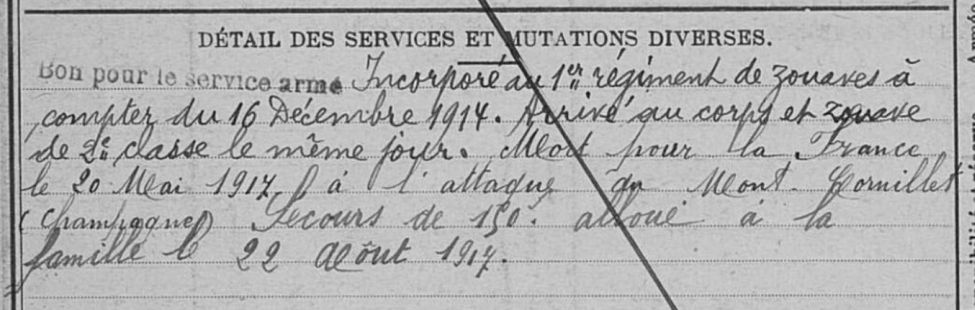 DÉTAIL DES SERVICES ET MUTATIONS DIVERSES.
Bon pour le service armé Incorporé au 1er régiment de zouaves à
compter du 16 Décembre 1914. Arrivé au corps et zouave
de 2e classe le même jour. Mort pour la France
le 20 Mai 1917 à l'attaque du Mont-Cornillet
(Champagne) Secours de 150f alloué à la
famille le 22 Août 1917.